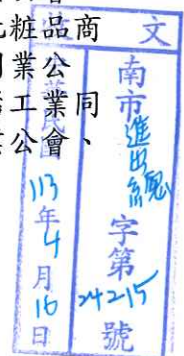 粧品商
業公
工業同
公會、
文
南市進出總字第24215號
民國113年4月16日